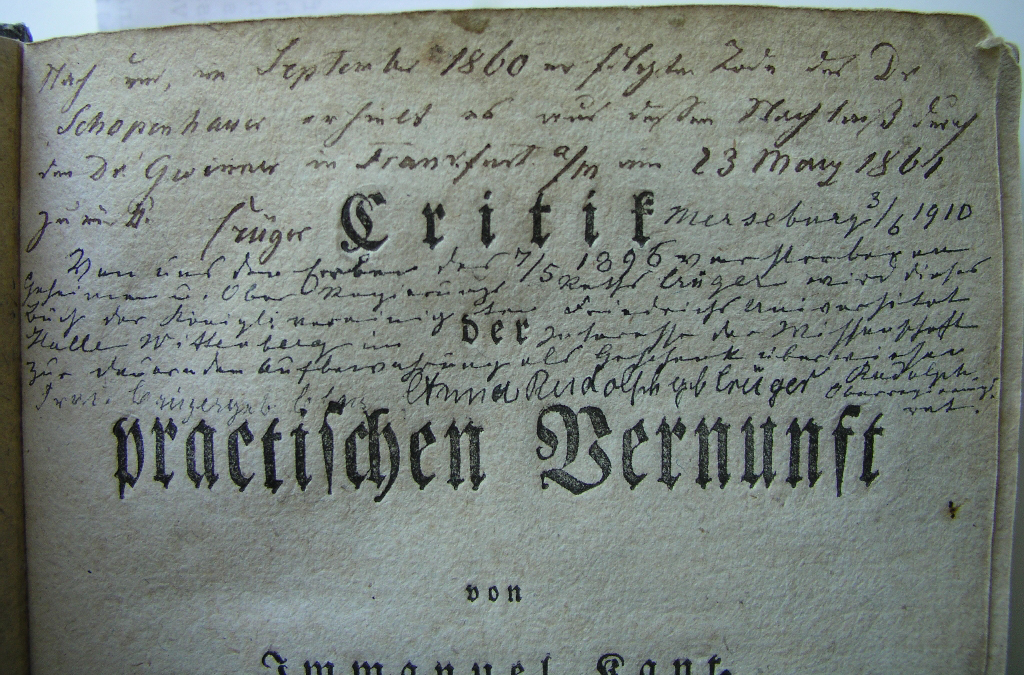 Nach der, im September 1860 erfolgten Tode des Dr
Schopenhauer erhielt es aus dessen Nachlaß durch
den Dr. Gwinner in Frankfurt a/m am 23 May 1861
Crüger
Critik
Merseburg 3/6 1910
Von uns den Erben des 7/5 1896 verstorbenen
Geheimen u. Ober Regierungs Raths Crüger wird dieses
Buch der Königl. vereinigten Friedrichs Universität
der
Halle Wittenberg im Interesse der Wissenschaft
zur dauernden Aufbewahrung als Geschenk überwiesen
Anna Rudolph geb Crüger Rudolph
Oberregierungs-
rat.
practiſchen Vernunft
von
Immanuel Kant.